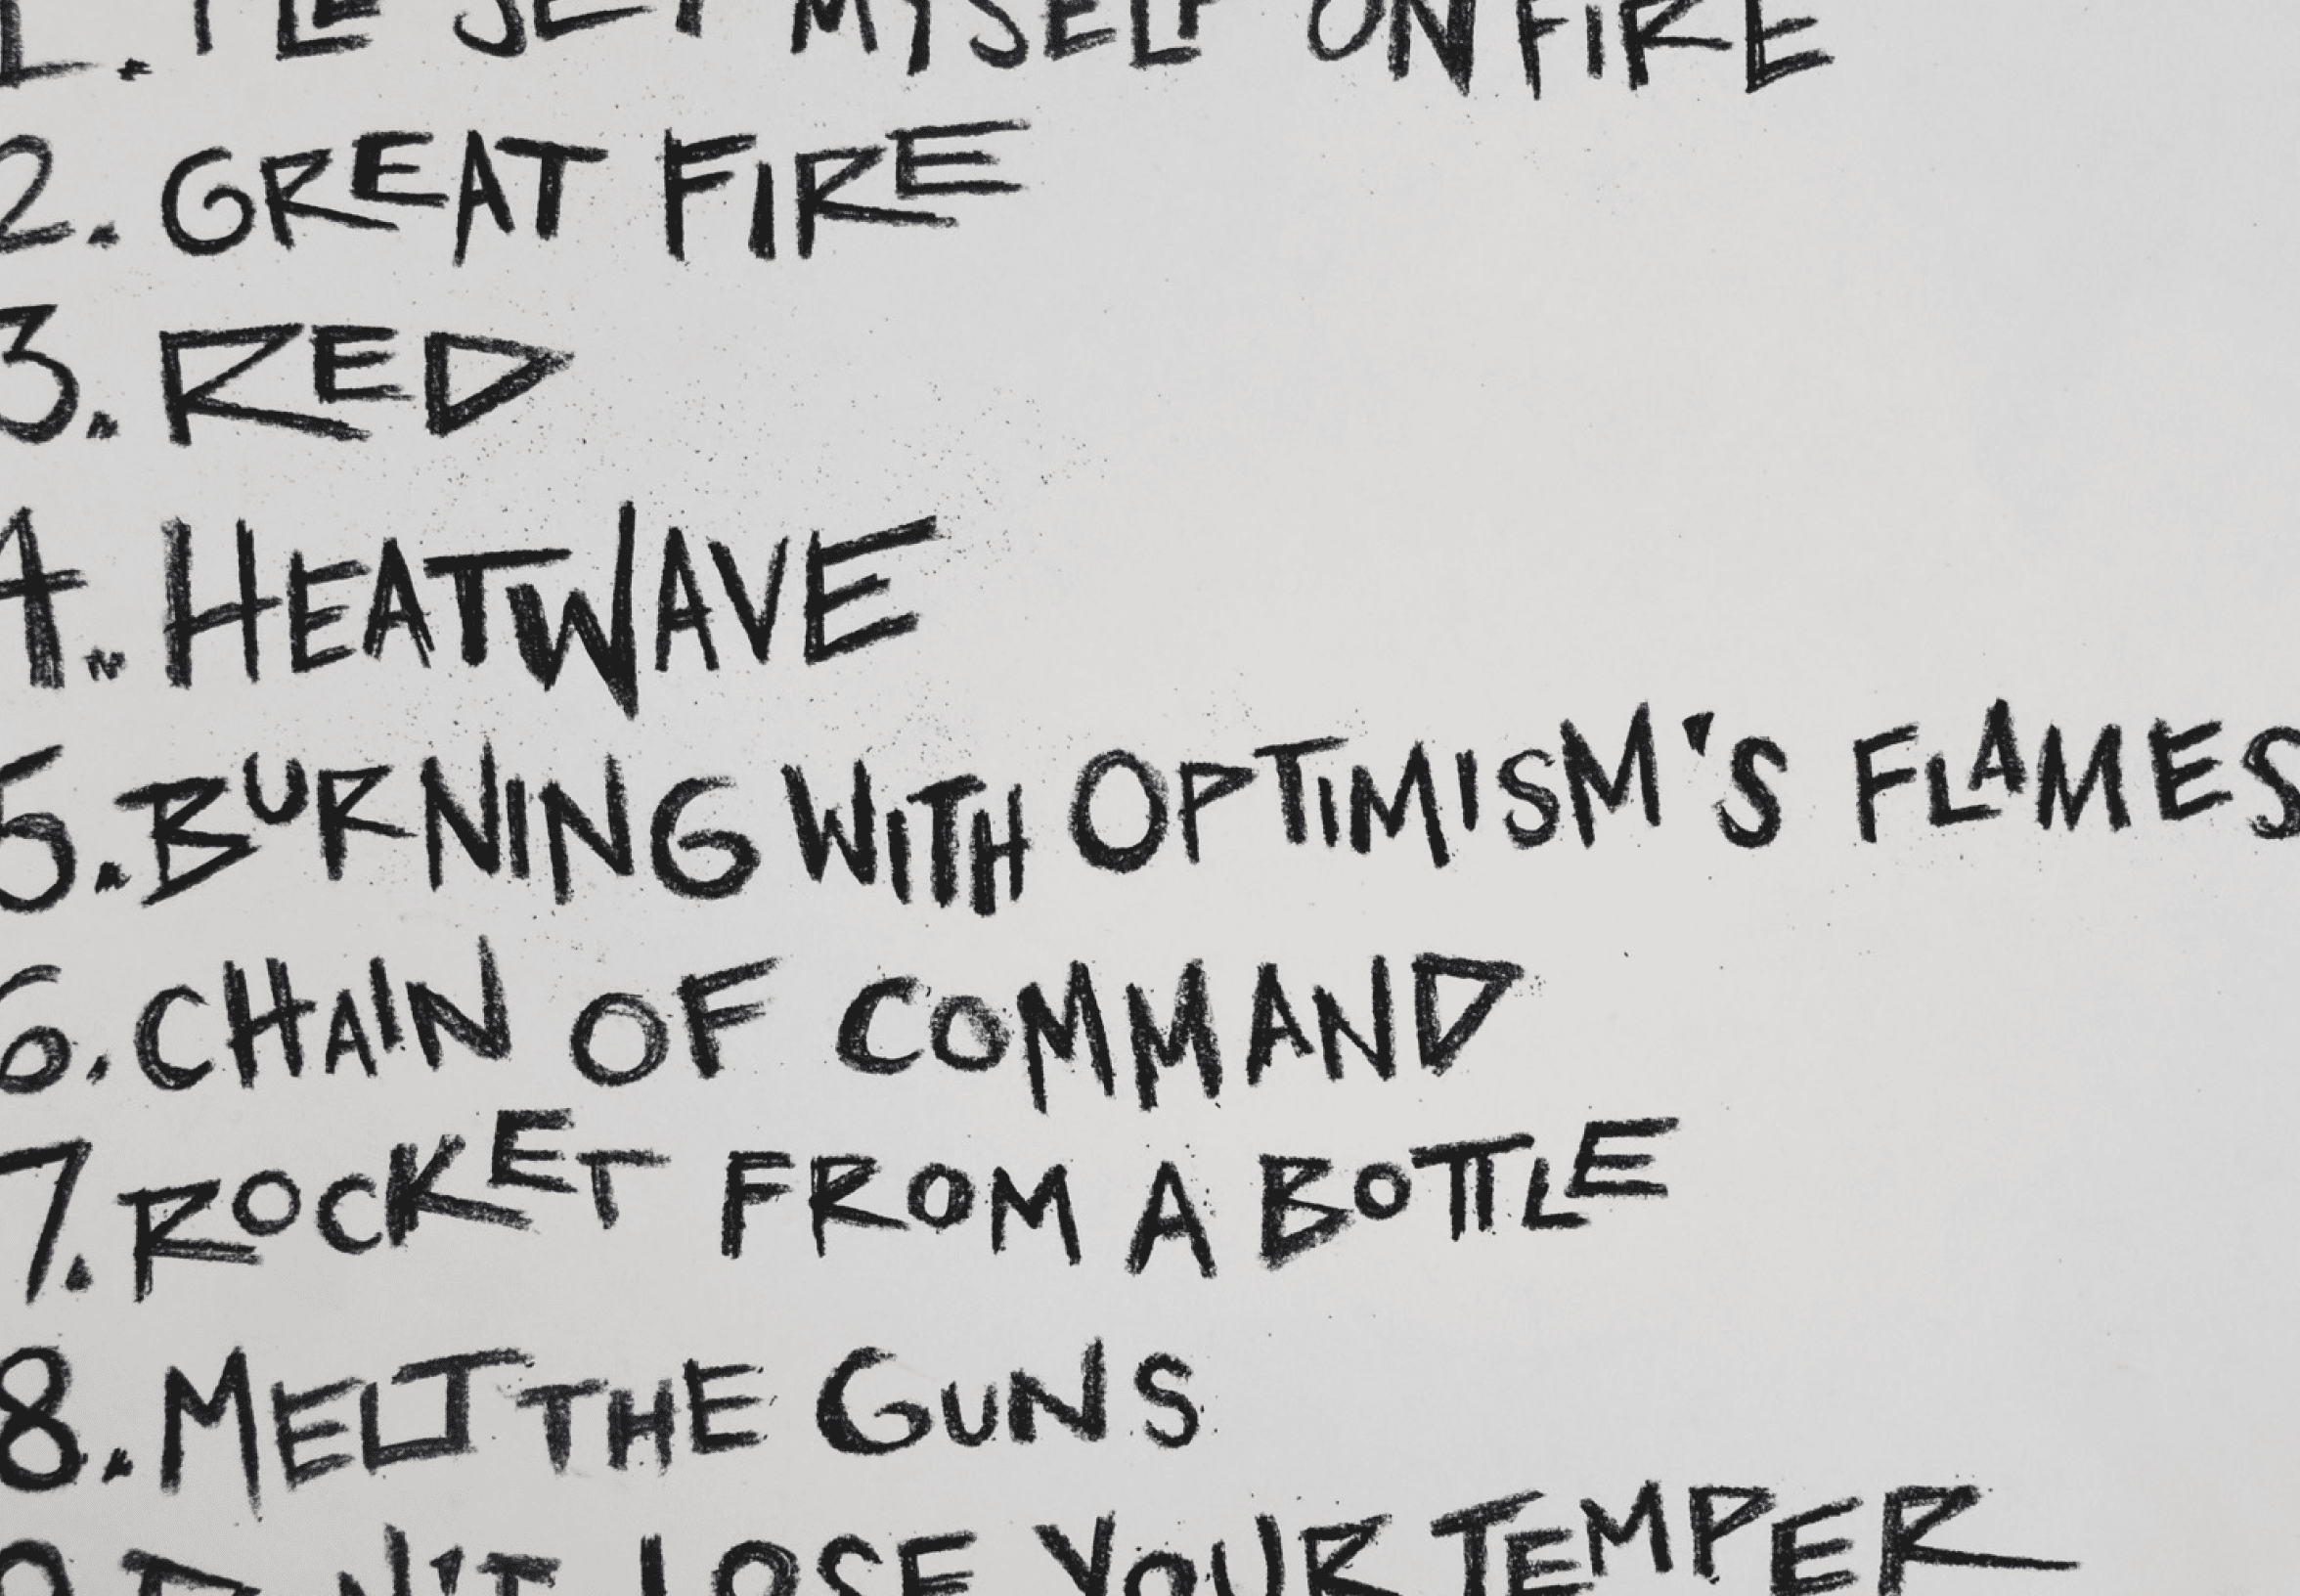 1. I'LL SET MYSELF ON FIRE
2. GREAT FIRE
3. RED
4. HEATWAVE
5. BURNING WITH OPTIMISM'S FLAMES
6. CHAIN OF COMMAND
7. ROCKET FROM A BOTTLE
8. MELT THE GUNS
9. DON'T LOSE YOUR TEMPER